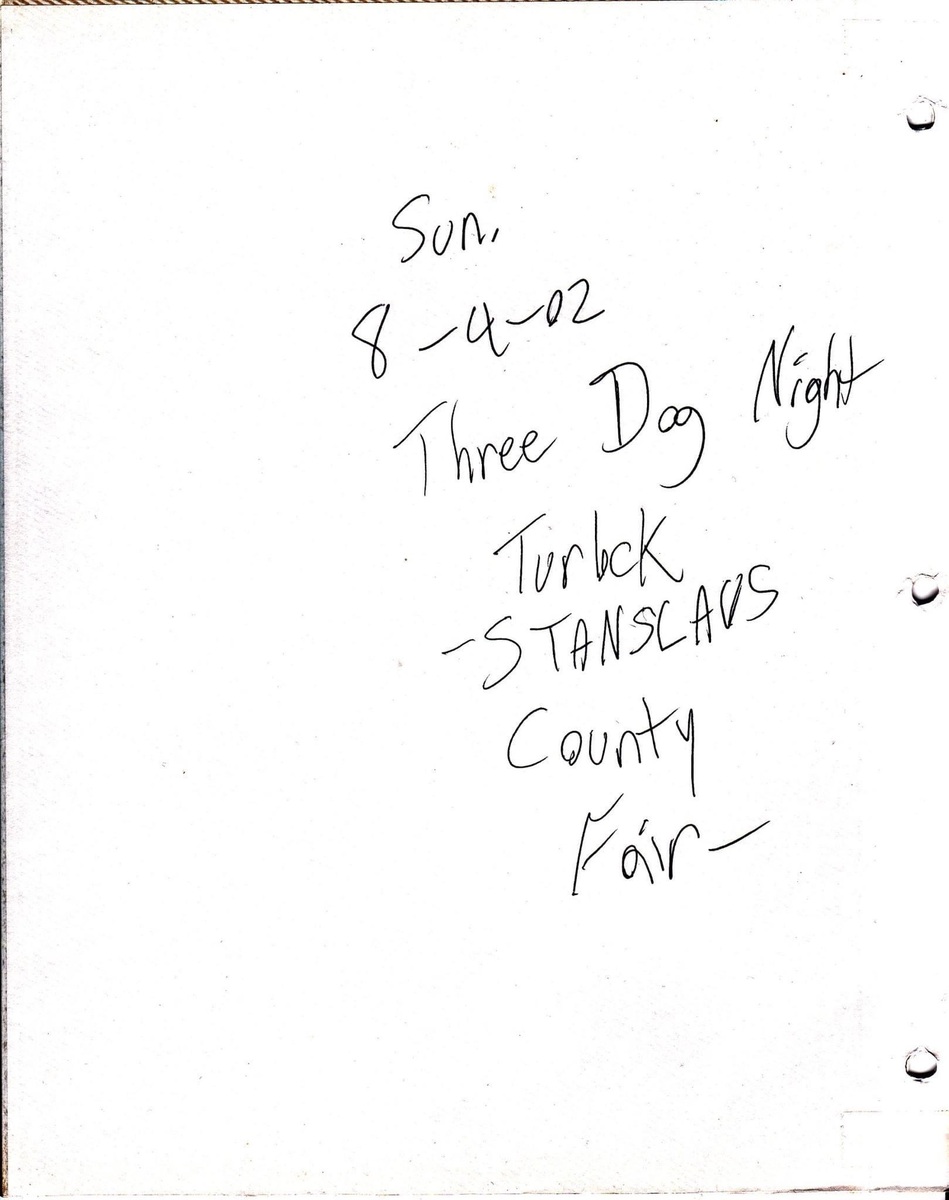 Sun.
8-4-02
Three Dog Night
Turlock
-STANSLAUS
County
Fair-